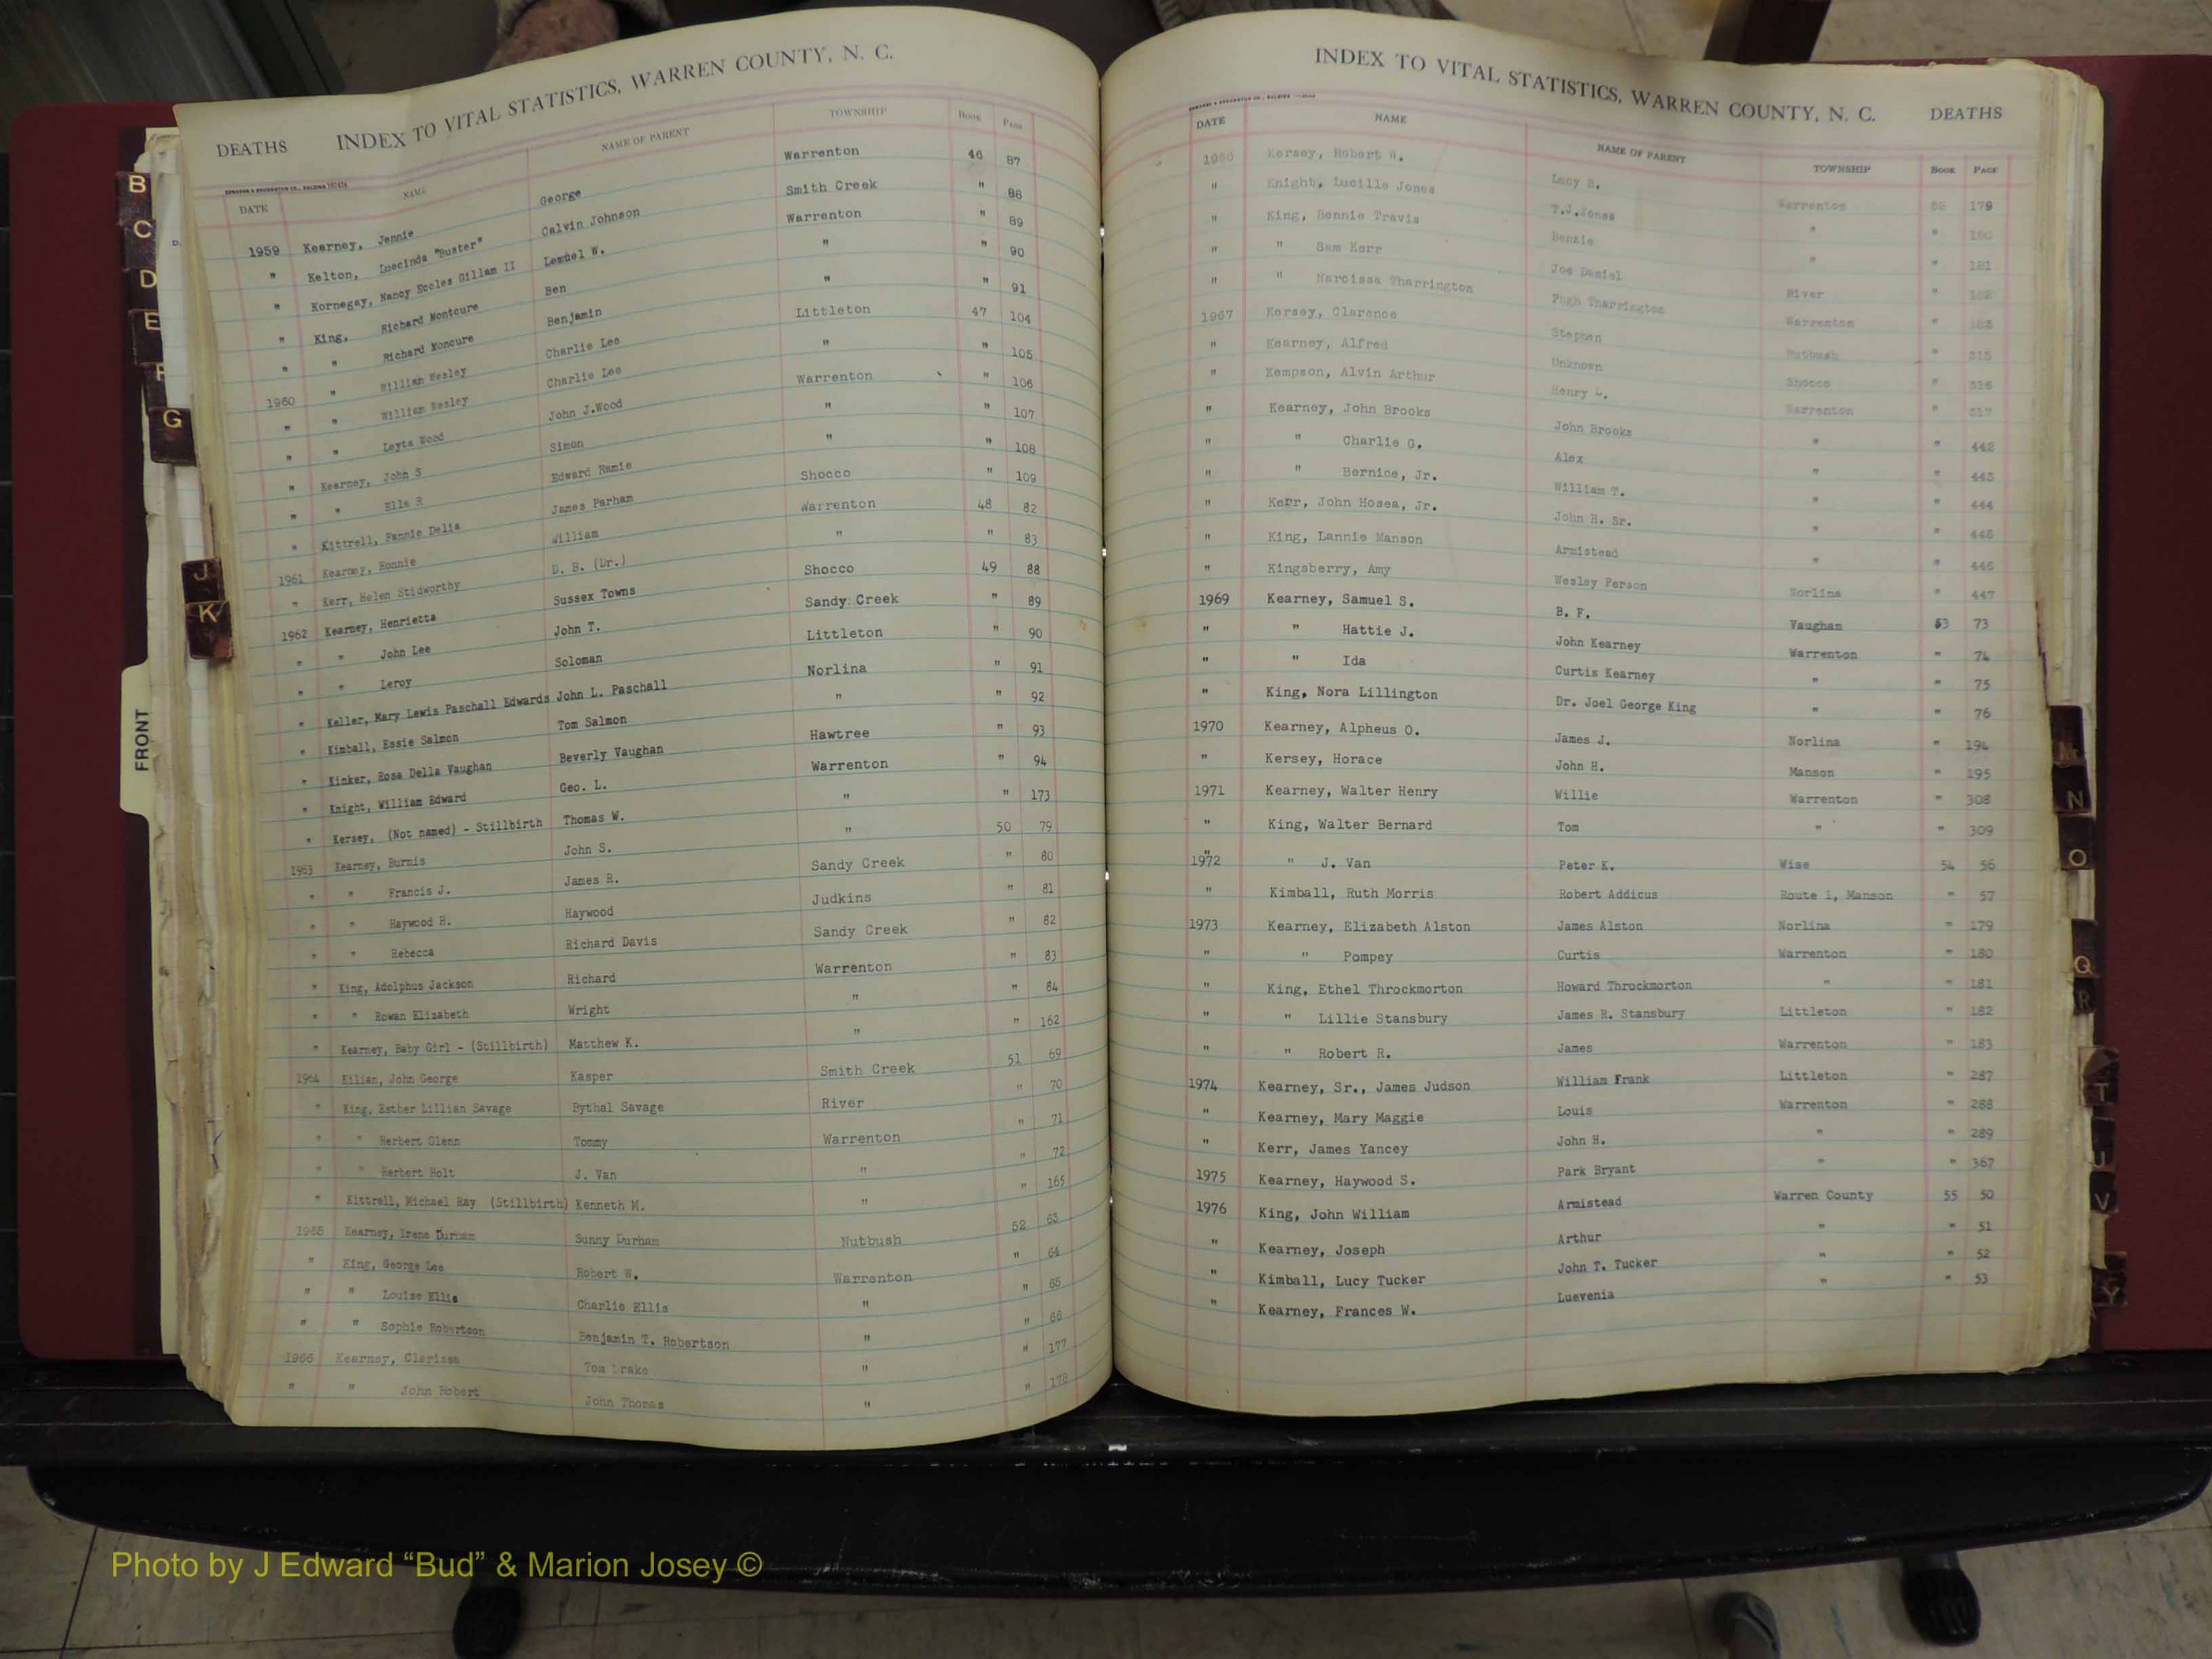 DEATHS INDEX TO VITAL STATISTICS, WARREN COUNTY, N. C.
DATE NAME NAME OF PARENT TOWNSHIP BOOK PAGE
1959 Kearney, Jennie George Warrenton 46 87
" Kelton, Luecinda "Buster" Calvin Johnson Smith Creek " 88
" Kornegay, Nancy Eccles Gillam II Lemuel W. Warrenton " 89
" King, Richard Montcure Ben " " 90
" " Richard Moncure Benjamin " " 91
1960 " William Wesley Charlie Lee Littleton 47 104
" " William Wesley Charlie Lee " " 105
" " Leyta Wood John J.Wood Warrenton " 106
" Kearney, John S Simon " " 107
" " Ella R Edward Ramie " " 108
" Kittrell, Fannie Delia James Parham Shocco " 109
1961 Kearney, Ronnie William Warrenton 48 82
" Kerr, Helen Stidworthy D. B. (Dr.) " " 83
1962 Kearney, Henrietta Sussex Towns Shocco 49 88
" " John Lee John T. Sandy Creek " 89
" " Leroy Soloman Littleton " 90
" Keller, Mary Lewis Paschall Edwards John L. Paschall Norlina " 91
" Kimball, Essie Salmon Tom Salmon " " 92
" Kinker, Rosa Della Vaughan Beverly Vaughan Hawtree " 93
" Knight, William Edward Geo. L. Warrenton " 94
" Kersey, (Not named) - Stillbirth Thomas W. " " 173
1963 Kearney, Burnis John S. " 50 79
" " Francis J. James R. Sandy Creek " 80
" " Haywood H. Haywood Judkins " 81
" " Rebecca Richard Davis Sandy Creek " 82
" King, Adolphus Jackson Richard Warrenton " 83
" " Rowan Elizabeth Wright " " 84
" Kearney, Baby Girl - (Stillbirth) Matthew K. " " 162
1964 Kilian, John George Kasper Smith Creek 51 69
" King, Esther Lillian Savage Bythal Savage River " 70
" " Herbert Glenn Tommy Warrenton " 71
" " Herbert Holt J. Van " " 72
" Kittrell, Michael Ray (Stillbirth) Kenneth M. " " 165
1965 Kearney, Irene Durham Sunny Durham Nutbush 52 63
" King, George Lee Robert W. Warrenton " 64
" " Louise Ellis Charlie Ellis " " 65
" " Sophie Robertson Benjamin T. Robertson " " 66
1966 Kearney, Clarissa Tom Drake " " 177
" " John Robert John Thomas " " 178
INDEX TO VITAL STATISTICS, WARREN COUNTY, N. C. DEATHS
DATE NAME NAME OF PARENT TOWNSHIP BOOK PAGE
Kersey, Robert W. Lucy B. Warrenton 52 179
" Knight, Lucille Jones T.J.Jones " " 180
" King, Bennie Travis Benzie " " 181
" " Sam Kerr Joe Daniel River " 182
" " Narcissa Tharrington Pugh Tharrington Warrenton " 183
1967 Kersey, Clarence Stephen Nutbush " 315
" Kearney, Alfred Unknown Shocco " 316
" Kempson, Alvin Arthur Henry L. Warrenton " 317
" Kearney, John Brooks John Brooks " " 442
" " Charlie G. Alex " " 443
" " Bernice, Jr. William T. " " 444
" Kerr, John Hosea, Jr. John H. Sr. " " 445
" King, Lannie Manson Armistead " " 446
" Kingsberry, Amy Wesley Person Norlina " 447
1969 Kearney, Samuel S. B. F. Vaughan 53 73
" " Hattie J. John Kearney Warrenton " 74
" " Ida Curtis Kearney " " 75
" King, Nora Lillington Dr. Joel George King " " 76
1970 Kearney, Alpheus O. James J. Norlina " 194
" Kersey, Horace John H. Manson " 195
1971 Kearney, Walter Henry Willie Warrenton " 308
" King, Walter Bernard Tom " " 309
1972 " J. Van Peter K. Wise 54 56
" Kimball, Ruth Morris Robert Addicus Route 1, Manson " 57
1973 Kearney, Elizabeth Alston James Alston Norlina " 179
" " Pompey Curtis Warrenton " 180
" King, Ethel Throckmorton Howard Throckmorton " " 181
" " Lillie Stansbury James R. Stansbury Littleton " 182
" " Robert R. James Warrenton " 183
1974 Kearney, Sr., James Judson William Frank Littleton " 287
" Kearney, Mary Maggie Louis Warrenton " 288
" Kerr, James Yancey John H. " " 289
1975 Kearney, Haywood S. Park Bryant " " 367
1976 King, John William Armistead Warren County 55 50
" Kearney, Joseph Arthur " " 51
" Kimball, Lucy Tucker John T. Tucker " " 52
" Kearney, Frances W. Luevenia " " 53
B
C
D
E
F
G
J
K
FRONT
M
N
O
Q
R
T
U
V
Y
Photo by J Edward “Bud” & Marion Josey ©